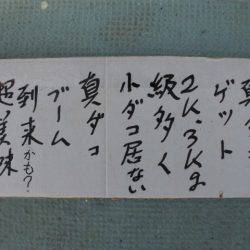 真ダコ
ゲット
2K.3Kg
級多く
小ダコ居ない
真ダコ
ブーム
到来かも?
超美味